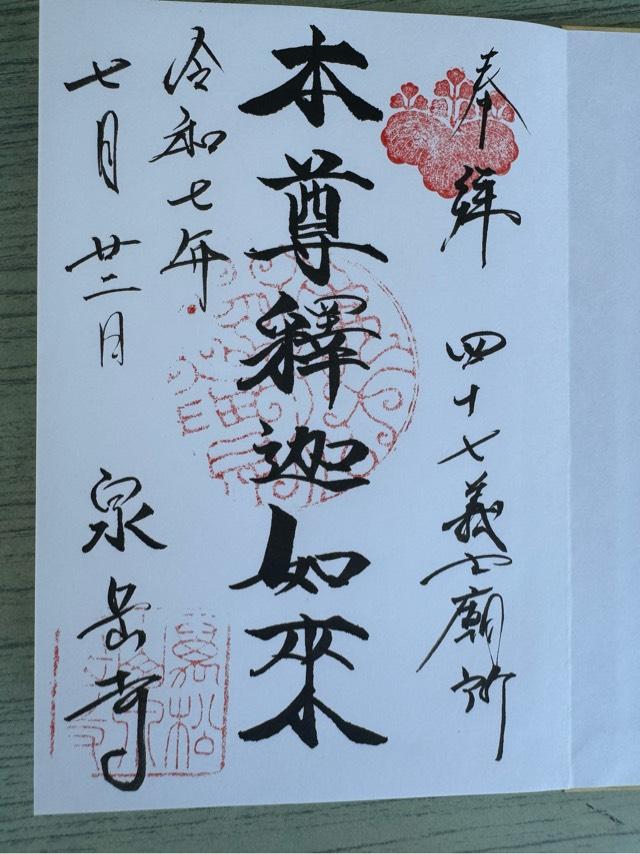 奉拝
四十七義士廟所
本尊釋迦如來
令和七年
七月廿二日
泉岳寺